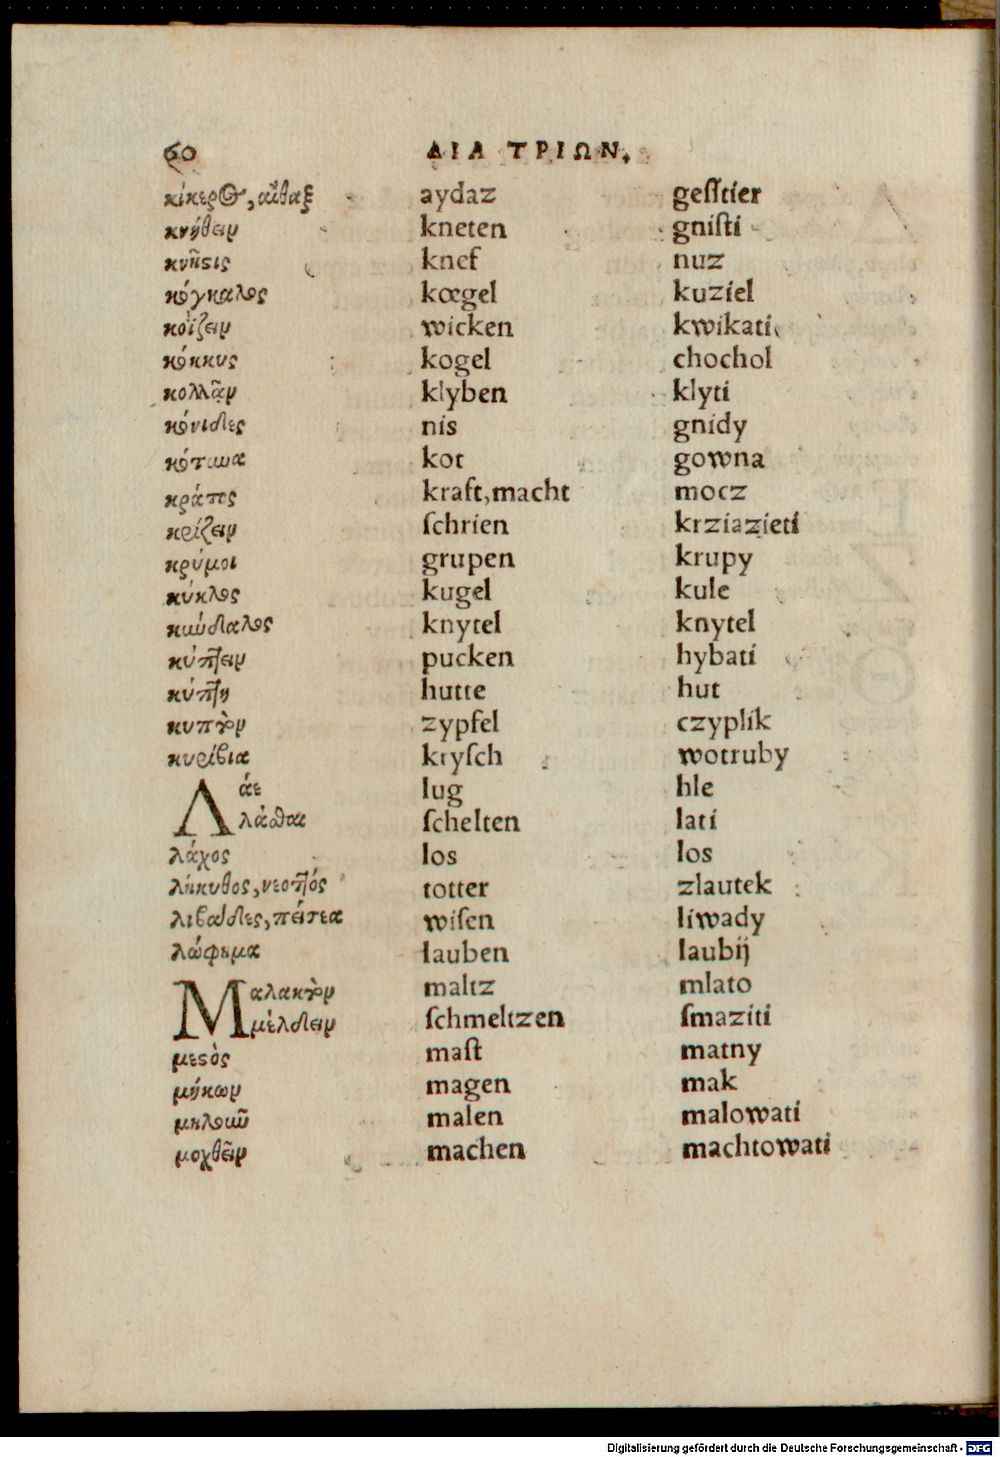 60 ΔΙΑ ΤΡΙΩΝ.
κίκερος, αἴθαξ aydaz gesſtier
κνήθειν kneten gniſti
κνῆςις knef nuz
κόγκαλος kœgel kuziel
κοΐζειν wicken kwikati
κόκκυς kogel chochol
κολλᾶν klyben klyti
κόνιδες nis gnidy
kot gowna
κράτος kraft,macht mocz
κρίζειν ſchrien krziazieti
κρύμοι grupen krupy
κύκλος kugel kule
κώδαλος knytel knytel
κύπτειν pucken hybati
κύπτη hutte hut
zypfel czyplik
κυρίβια kryſch wotruby
Λάε lug hle
λάσθαι ſchelten lati
λάχος los los
λήκυθος, νεοττός totter zlautek
λιβάδες, πείσεα wiſen liwady
λώφημα lauben laubij
Μαλακτὸν maltz mlato
μέλδειν ſchmeltzen ſmaziti
μεςὸς maſt matny
μήκων magen mak
μηλοῦν malen malowati
μοχθεῖν machen machtowati
Digitalisierung gefördert durch die Deutsche Forschungsgemeinschaft - DFG